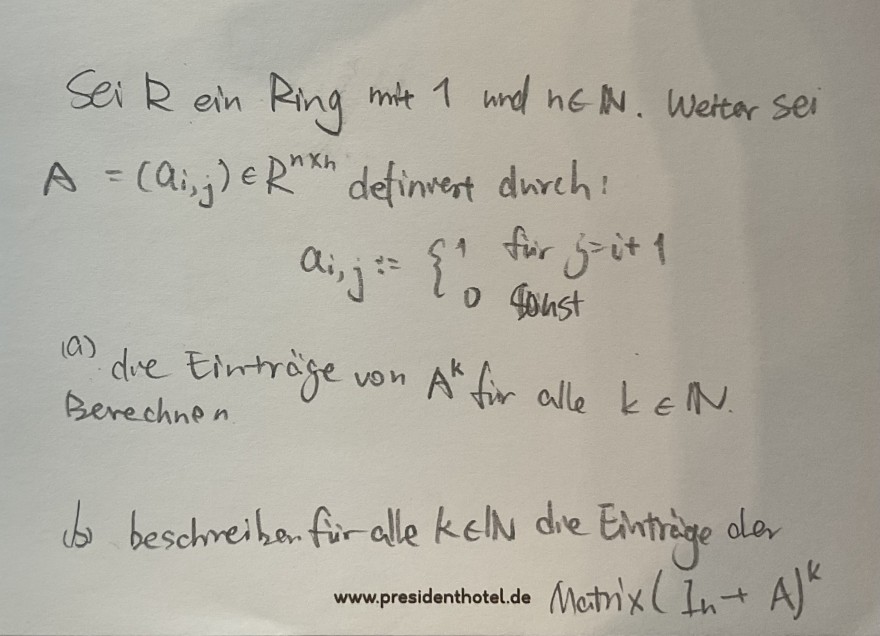 Sei R ein Ring mit 1 und n ∈ ℕ. Weiter sei
A = (a_{i,j}) ∈ R^{n×n} definiert durch:
a_{i,j} := { 1 für j=i+1
0 sonst
(a) die Einträge von A^k für alle k ∈ ℕ.
Berechnen
(b) beschreiben für alle k ∈ ℕ die Einträge der
Matrix (I_n + A)^k
www.presidenthotel.de